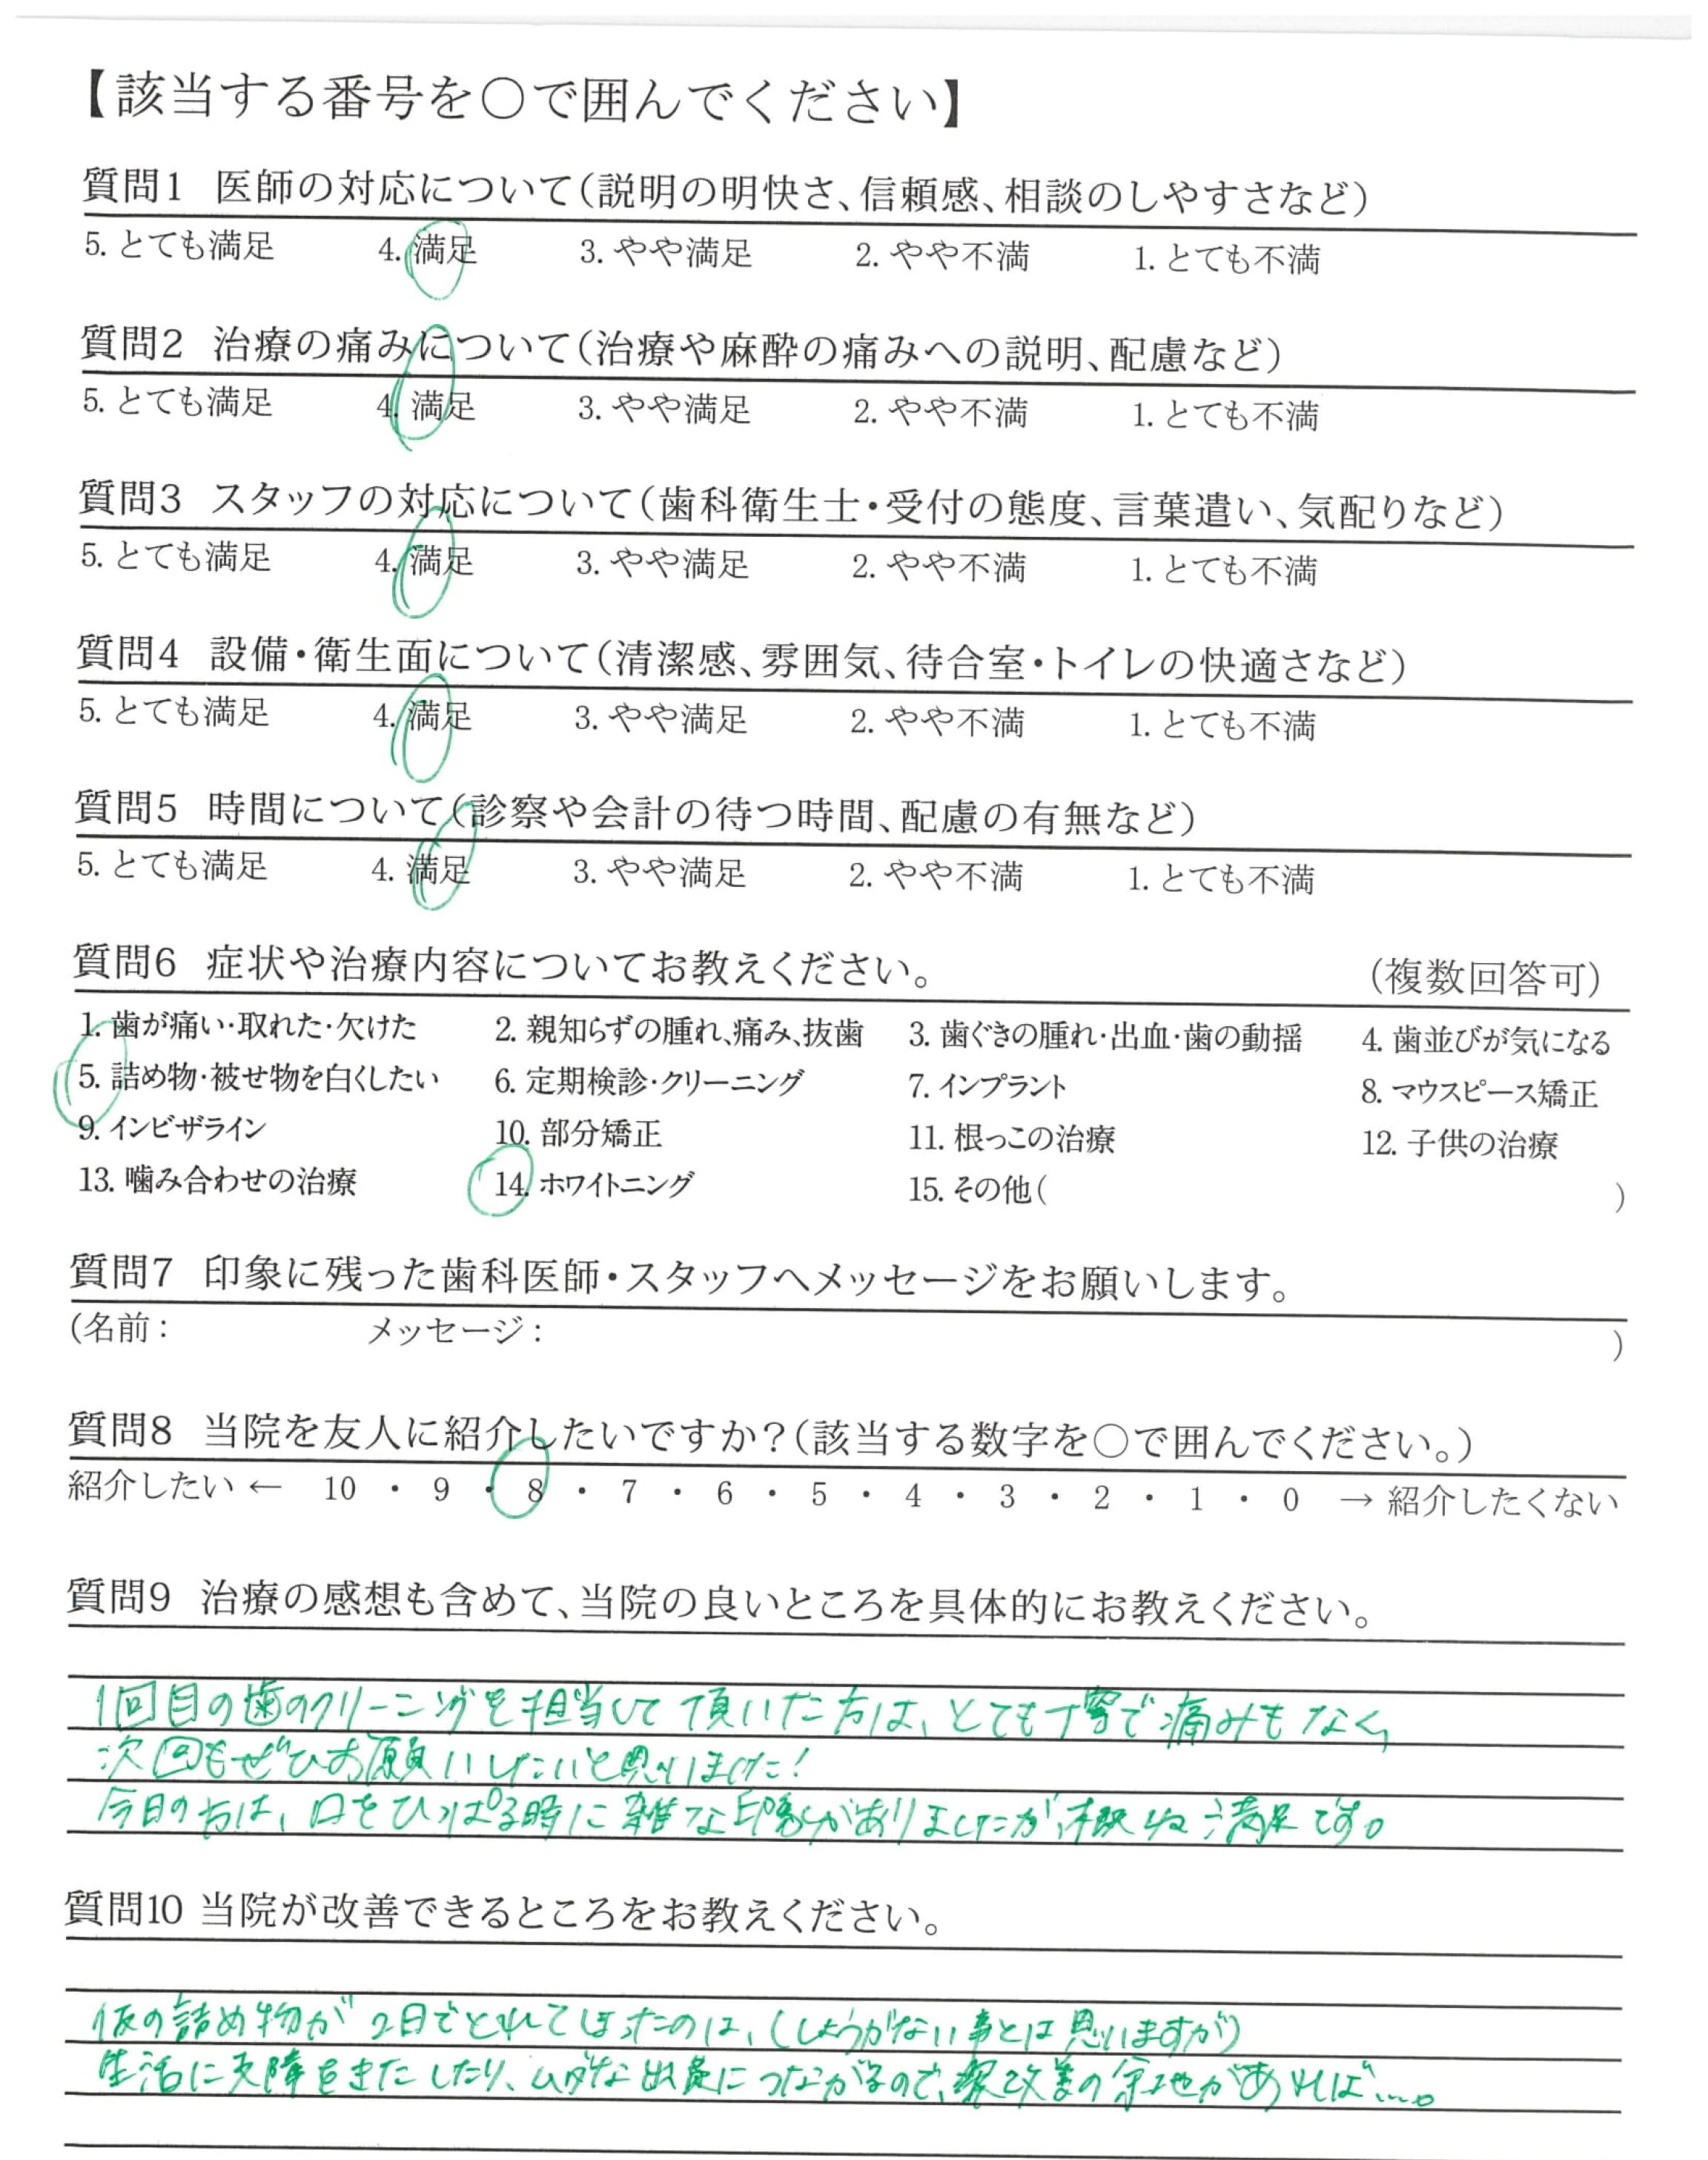 【該当する番号を○で囲んでください】
質問1 医師の対応について(説明の明快さ、信頼感、相談のしやすさなど)
5. とても満足 4. 満足 3. やや満足 2. やや不満 1. とても不満
質問2 治療の痛みについて(治療や麻酔の痛みへの説明、配慮など)
5. とても満足 4. 満足 3. やや満足 2. やや不満 1. とても不満
質問3 スタッフの対応について(歯科衛生士・受付の態度、言葉遣い、気配りなど)
5. とても満足 4. 満足 3. やや満足 2. やや不満 1. とても不満
質問4 設備・衛生面について(清潔感、雰囲気、待合室・トイレの快適さなど)
5. とても満足 4. 満足 3. やや満足 2. やや不満 1. とても不満
質問5 時間について(診察や会計の待つ時間、配慮の有無など)
5. とても満足 4. 満足 3. やや満足 2. やや不満 1. とても不満
質問6 症状や治療内容についてお教えください。 (複数回答可)
1. 歯が痛い・取れた・欠けた 2. 親知らずの腫れ、痛み、抜歯 3. 歯ぐきの腫れ・出血・歯の動揺 4. 歯並びが気になる
5. 詰め物・被せ物を白くしたい 6. 定期検診・クリーニング 7. インプラント 8. マウスピース矯正
9. インビザライン 10. 部分矯正 11. 根っこの治療 12. 子供の治療
13. 噛み合わせの治療 14. ホワイトニング 15. その他( )
質問7 印象に残った歯科医師・スタッフへメッセージをお願いします。
(名前: メッセージ: )
質問8 当院を友人に紹介したいですか?(該当する数字を○で囲んでください。)
紹介したい ← 10 ・ 9 ・ 8 ・ 7 ・ 6 ・ 5 ・ 4 ・ 3 ・ 2 ・ 1 ・ 0 → 紹介したくない
質問9 治療の感想も含めて、当院の良いところを具体的にお教えください。
1回目の歯のクリーニングを担当して頂いた方は、とても丁寧で痛みもなく、
次回もぜひお願いしたいと思いました!
今日の方は、口をひっぱる時に雑な印象がありましたが、概ね満足です。
質問10 当院が改善できるところをお教えください。
仮の詰め物が2日でとれてしまったのは、(しょうがない事とは思いますが)
生活に支障をきたしたり、ムダな出費につながるので、改善の余地があれば…。